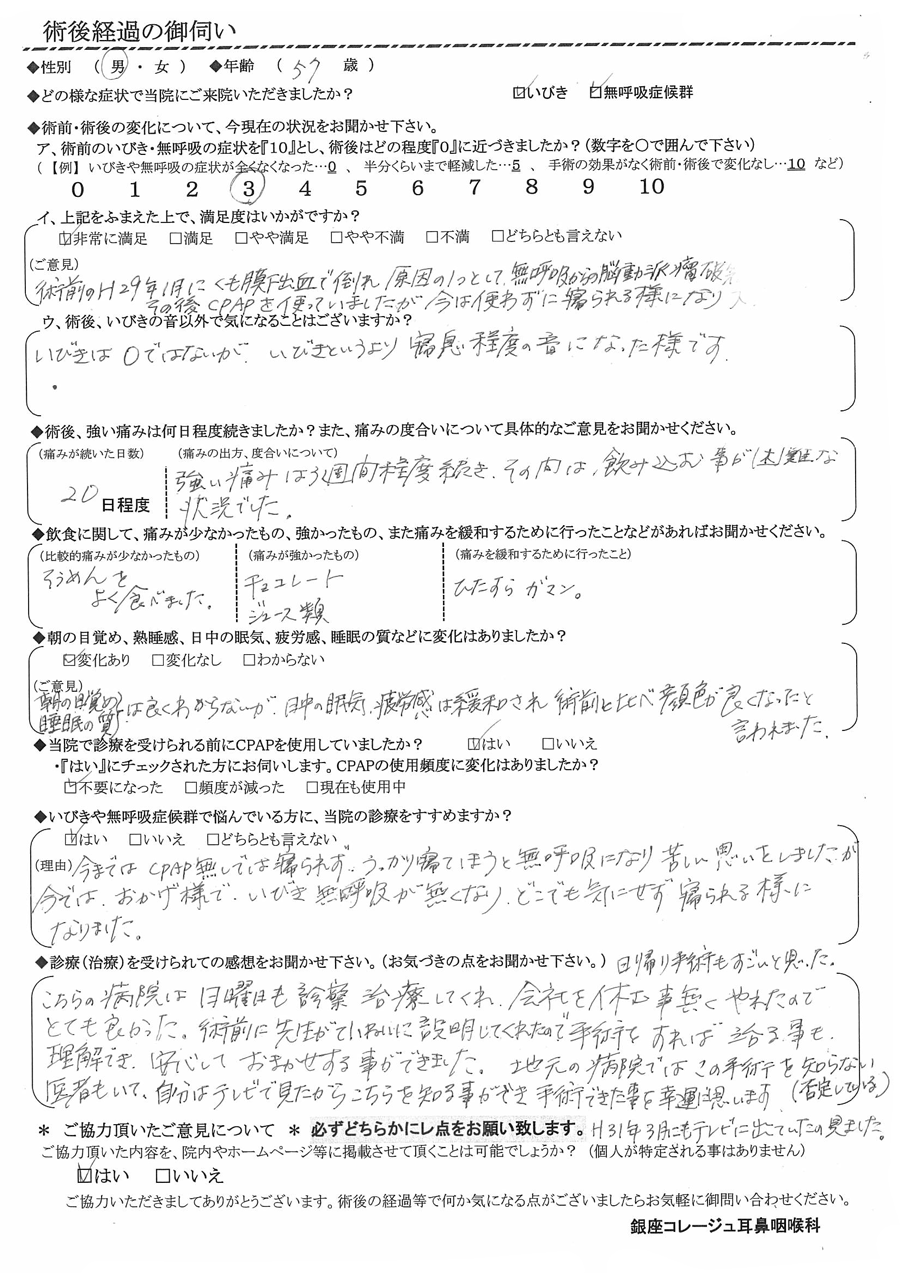 術後経過の御伺い
◆性別 （ 男 ・ 女 ） ◆年齢 （ 57 歳 ）
◆どの様な症状で当院にご来院いただきましたか？ ☑いびき ☑無呼吸症候群
◆術前・術後の変化について、今現在の状況をお聞かせ下さい。
ア、術前のいびき・無呼吸の症状を『10』とし、術後はどの程度『0』に近づきましたか？（数字を〇で囲んで下さい）
（ 【例】 いびきや無呼吸の症状が全くなくなった…0 、 半分くらいまで軽減した…5 、 手術の効果がなく術前・術後で変化なし…10 など）
0 1 2 3 4 5 6 7 8 9 10
イ、上記をふまえた上で、満足度はいかがですか？
☑非常に満足 □満足 □やや満足 □やや不満 □不満 □どちらとも言えない
（ご意見）
術前のH29年1月にくも膜下出血で倒れ 原因の1つとして、無呼吸からの脳動脈瘤破
その後CPAPを使っていましたが 今は使わずに寝られる様になり
ウ、術後、いびきの音以外で気になることはございますか？
いびきは0ではないが、いびきというより 寝息程度の音になった様です.
◆術後、強い痛みは何日程度続きましたか？また、痛みの度合いについて具体的なご意見をお聞かせください。
（痛みが続いた日数） （痛みの出方、度合いについて）
強い痛みは3週間程度続き、その内は、飲み込む事が困難な
20 日程度 状況でした。
◆飲食に関して、痛みが少なかったもの、強かったもの、また痛みを緩和するために行ったことなどがあればお聞かせください。
（比較的痛みが少なかったもの） （痛みが強かったもの） （痛みを緩和するために行ったこと）
そうめんを チョコレート ひたすら ガマン。
よく食べました。 ジュース類
◆朝の目覚め、熟睡感、日中の眠気、疲労感、睡眠の質などに変化はありましたか？
☑変化あり □変化なし □わからない
（ご意見）
朝の目覚め
睡眠の質 は良くわからないが、日中の眠気、疲労感は緩和され 術前と比べ顔色が良くなったと
言われました.
◆当院で診療を受けられる前にCPAPを使用していましたか？ ☑はい □いいえ
・『はい』にチェックされた方にお伺いします。CPAPの使用頻度に変化はありましたか？
☑不要になった □頻度が減った □現在も使用中
◆いびきや無呼吸症候群で悩んでいる方に、当院の診療をすすめますか？
☑はい □いいえ □どちらとも言えない
（理由） 今まではCPAP無しでは寝られず、うっかり寝てしまうと無呼吸になり 苦しい思いをしましたが
今では、おかげ様で、いびき無呼吸が無くなり、どこでも気にせず寝られる様に
なりました。
◆診療（治療）を受けられての感想をお聞かせ下さい。（お気づきの点をお聞かせ下さい。） 日帰り手術もすごいと思った.
こちらの病院は日曜日も診察治療してくれ、会社を休む事無くやれたので
とても良かった。術前に先生がていねいに説明してくれたので手術をすれば治る事も、
理解でき、安心しておまかせする事ができました。 地元の病院ではこの手術を知らない
医者もいて、自分はテレビで見たからこちらを知る事ができ 手術できた事を幸運に思います (否定している)
＊ ご協力頂いたご意見について ＊ 必ずどちらかにレ点をお願い致します。 H31年3月にもテレビに出ていたの見ました。
ご協力頂いた内容を、院内やホームページ等に掲載させて頂くことは可能でしょうか？ （個人が特定される事はありません）
☑はい □いいえ
ご協力いただきましてありがとうございます。術後の経過等で何か気になる点がございましたらお気軽に御問い合わせください。
銀座コレージュ耳鼻咽喉科